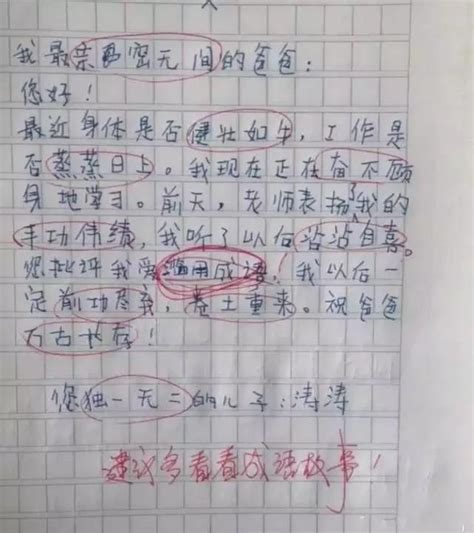 我最亲密无间的爸爸：
您好！
最近身体是否健壮如牛，工作是
否蒸蒸日上。我现在正在奋不顾
身地学习。前天，老师表扬了我的
丰功伟绩，我听了以后沾沾自喜。
您批评我爱滥用成语，我以后一
定前功尽弃，卷土重来。祝爸爸
万古长存！
您独一无二的儿子：涛涛
建议多看看成语故事！